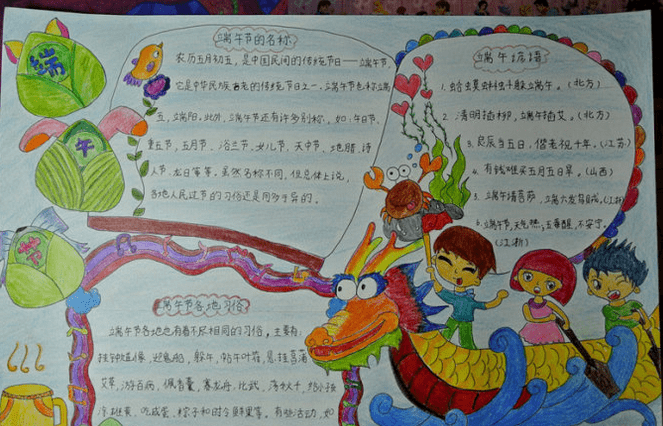 端
午
节
端午节的名称
农历五月初五，是中国民间的传统节日——端午节，
它是中华民族古老的传统节日之一。端午节也称端
五，端阳。此外，端午节还有许多别称，如：午日节、
重五节，五月节，浴兰节，女儿节，天中节、地腊、诗
人节、龙日等等。虽然名称不同，但总体上说，
各地人民过节的习俗还是同多于异的。
端午谚语
1. 蛤蟆蝌蚪躲端午。（北方）
2. 清明插柳，端午插艾。（北方）
3. 良辰当五日，偕老祝千年。（江苏）
4. 有钱难买五月五日旱。（山西）
5. 端午请菩萨，端六发乌贼。（江浙）
6. 端午节，天气热；五毒醒，不安宁。
（江浙）
端午节各地习俗
端午节各地也有着不尽相同的习俗，主要有：
挂钟馗像，迎鬼船，躲午，帖午叶符，悬挂菖蒲
艾草，游百病，佩香囊，赛龙舟，比武，荡秋千，给小孩
涂雄黄，吃咸蛋，粽子和时令鲜果等。有些活动，如